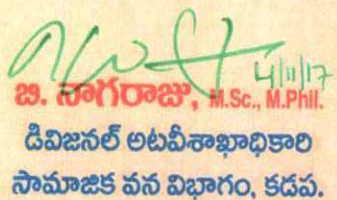 4/11/17
బి. నాగరాజు, M.Sc., M.Phil.
డివిజనల్ అటవీశాఖాధికారి
సామాజిక వన విభాగం, కడప.